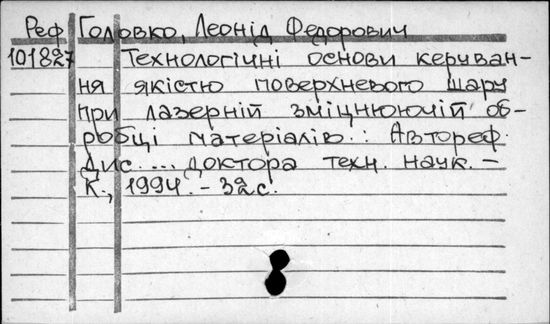 Реф Головко, Леонід Федорович
101827 Технологічні основи керуван-
ня якістю поверхневого шару
при лазерній зміцнюючій об-
робці матеріалів.: Автореф.
Дис .... доктора техн. наук. –
К., 1994. – 32с.